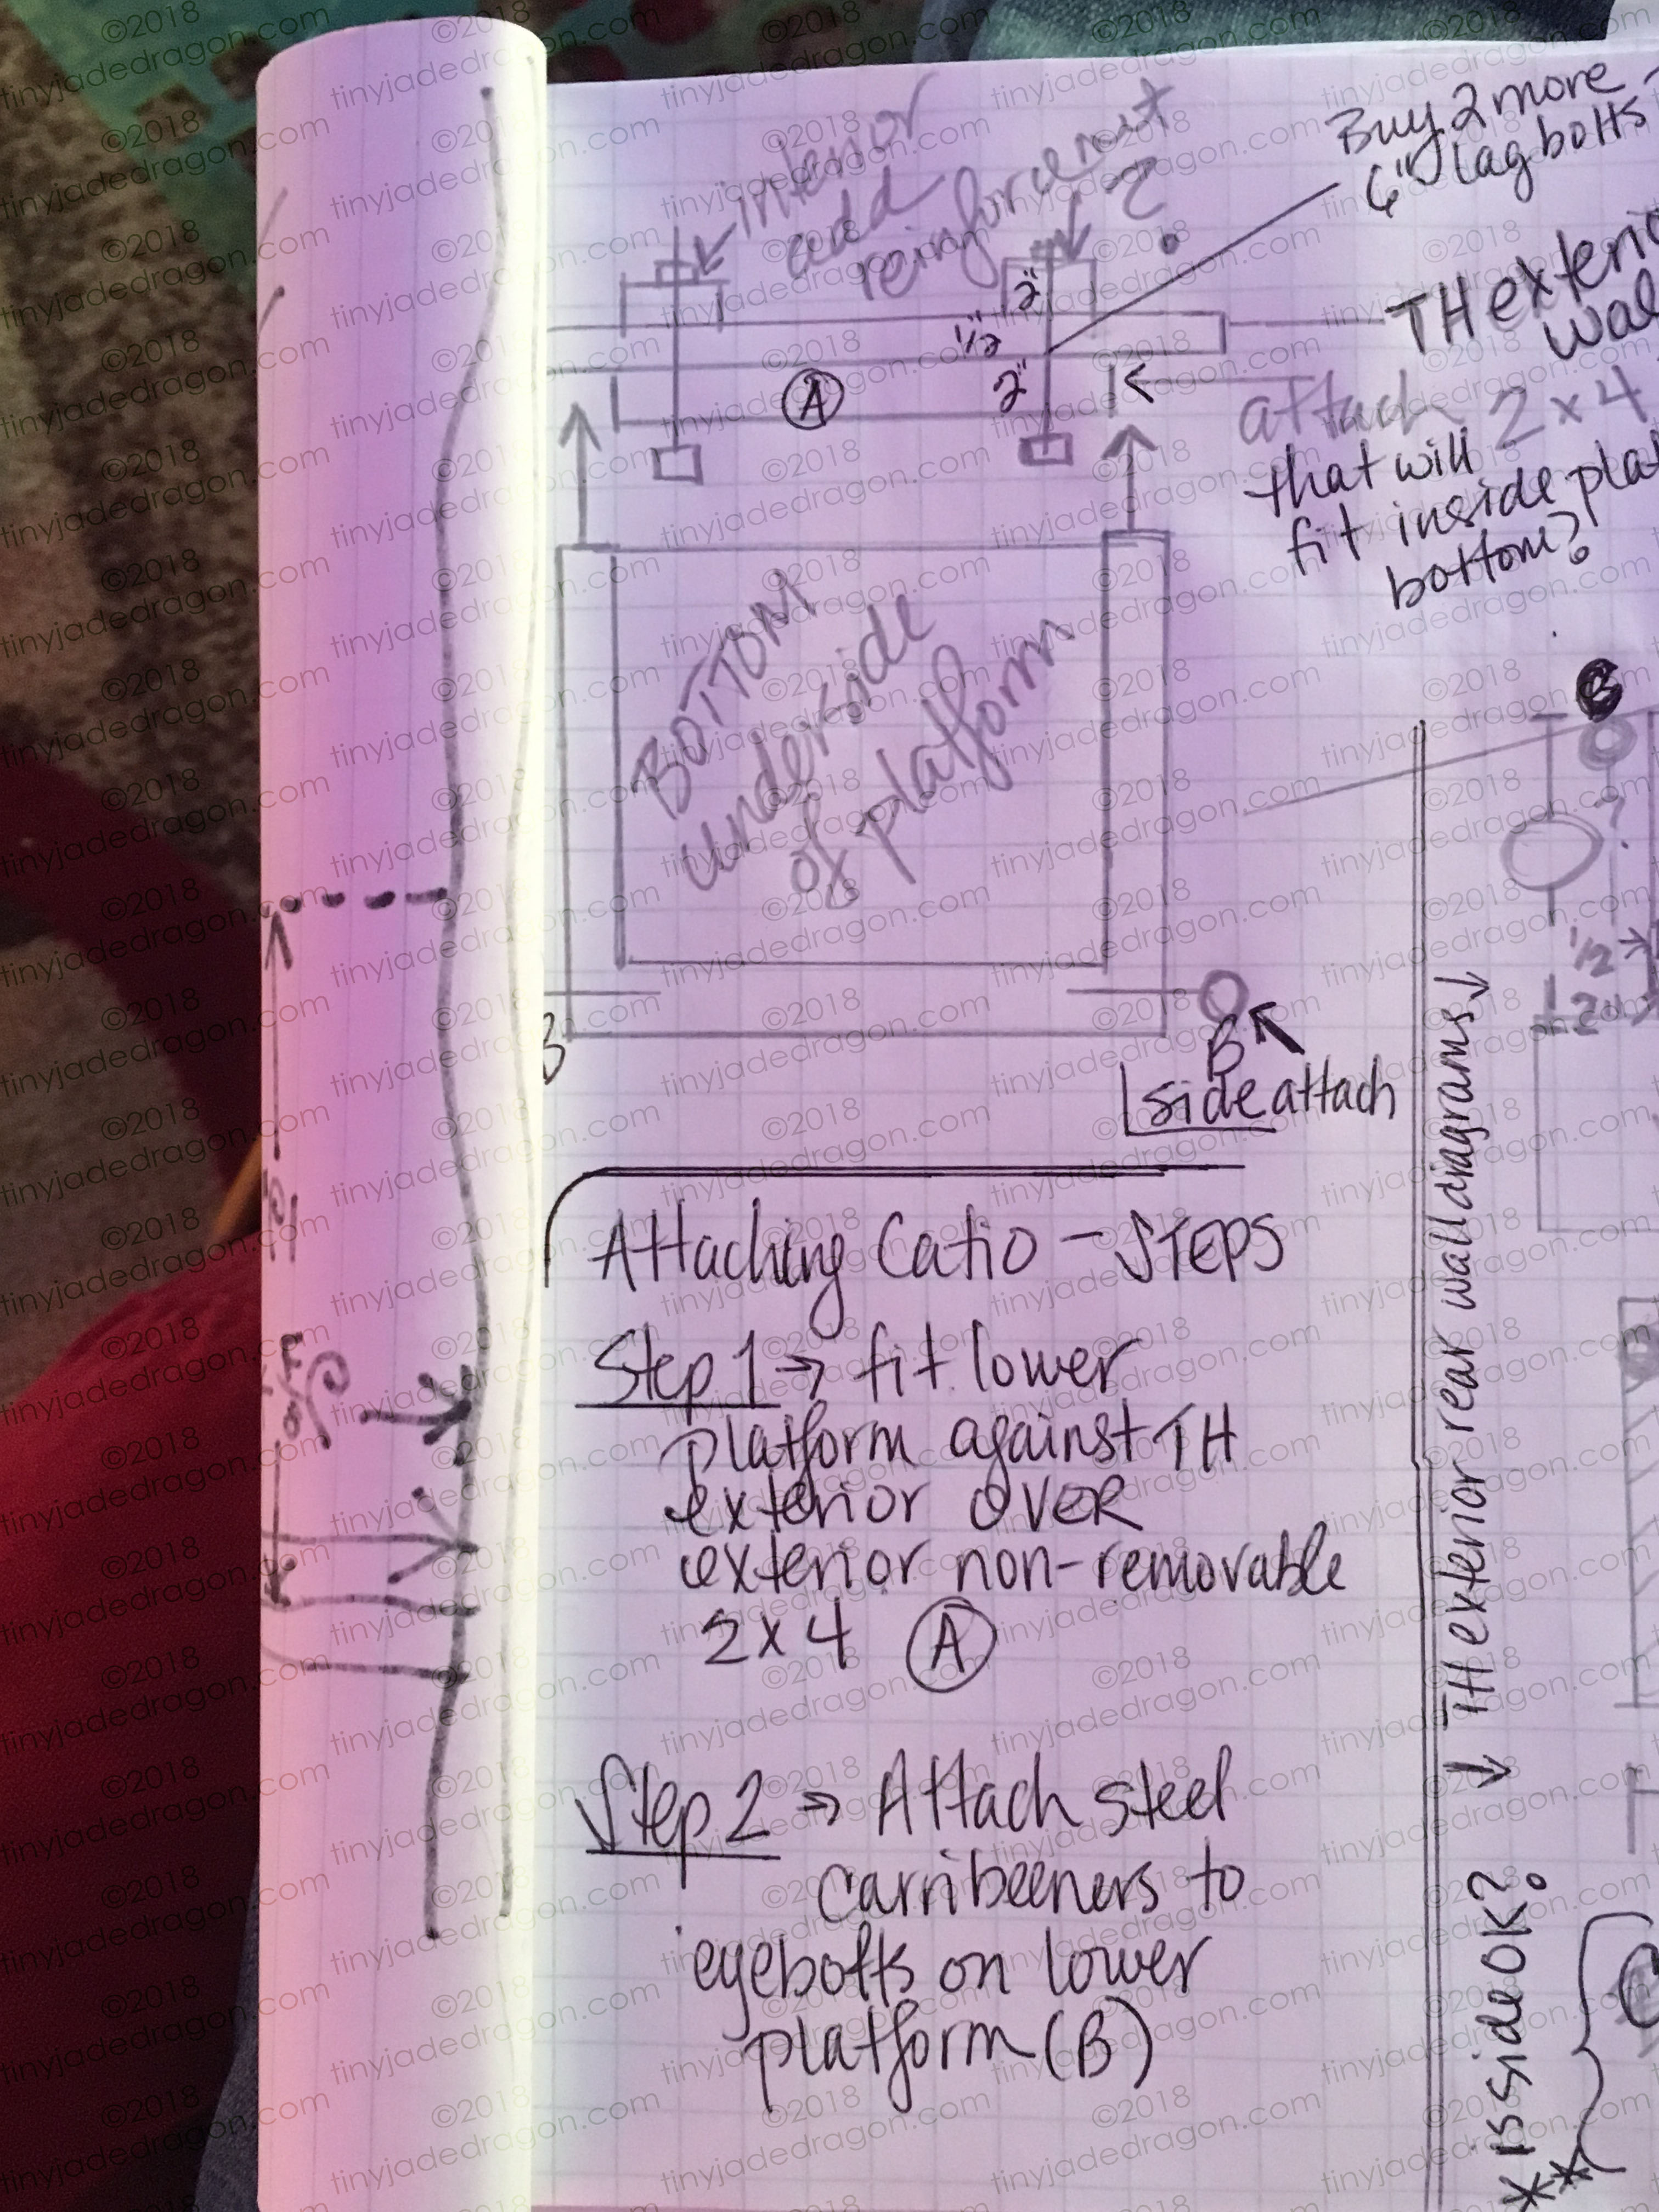 Buy 2 more
6" lag bolts
interior
add
reinforcement
?
2"
1/2"
2"
A
TH exterio
wal
attach 2x4
that will
fit inside plat
bottom?
BOTTOM
underside
of platform
B
B
side attach
B
?
1/2
2"
Attaching Catio - STEPS
Step 1 → fit lower
platform against TH
exterior OVER
exterior non-removable
2x4 A
Step 2 → Attach steel
carribeeners to
eyebolts on lower
platform (B)
↓ TH exterior rear wall diagrams ↓
* is side OK?
©2018
tinyjadedragon.com